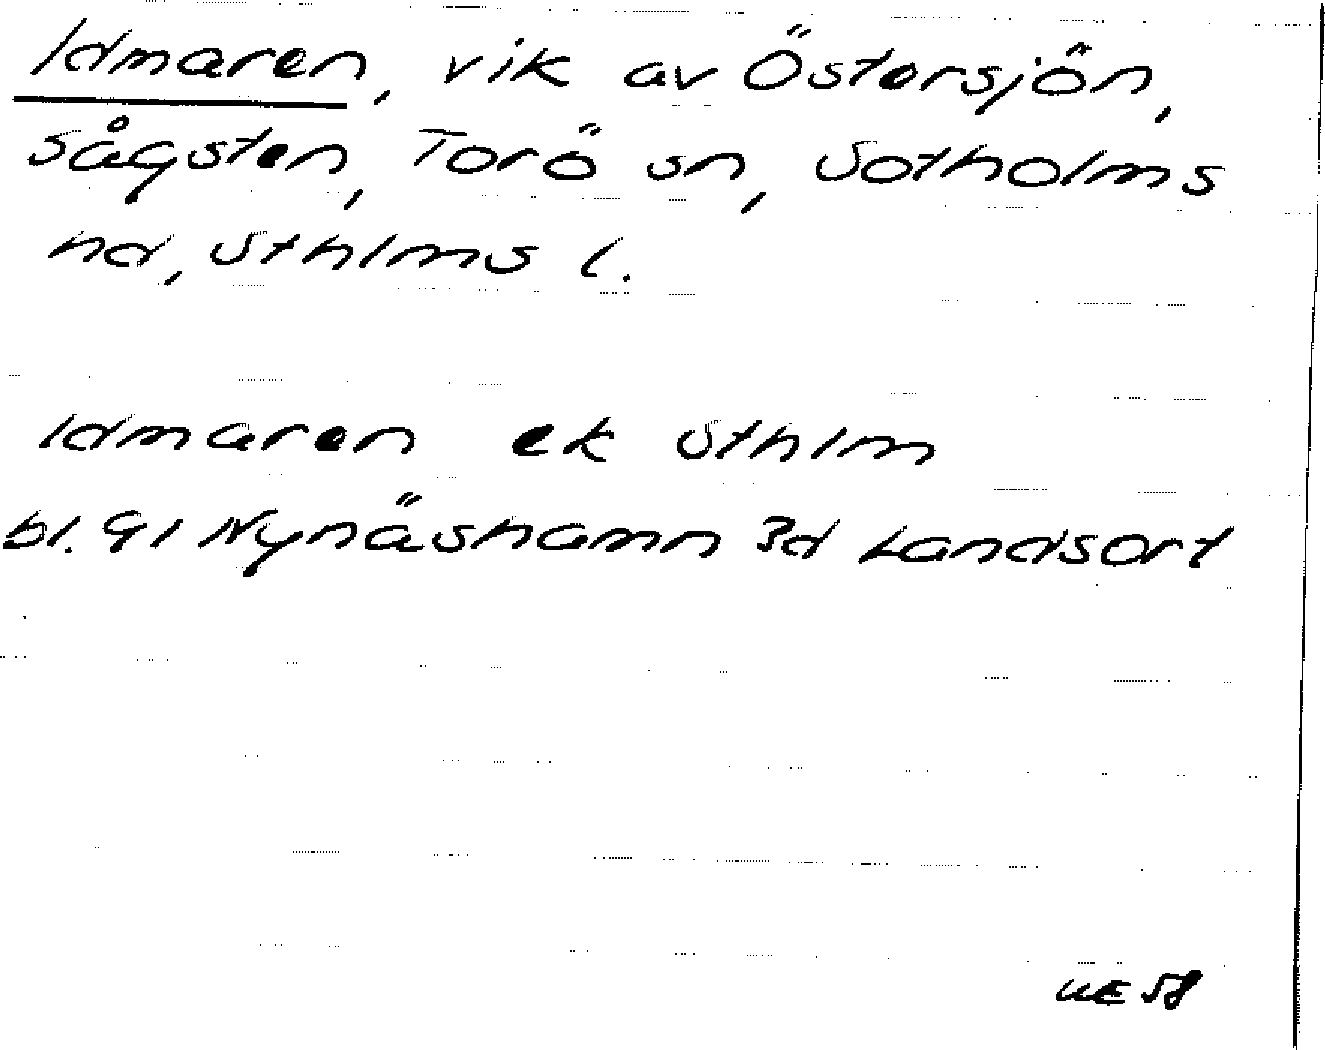 Idmaren, vik av Östersjön,
Sågsten, Torö sn, Sotholms
hd, Sthlms l.
Idmaren ek Sthlm
bl. 91 Nynäshamn 3d Landsort
UE 58